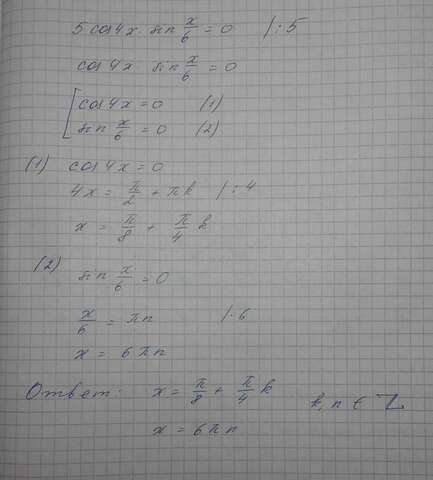 5 cos 4x sin x/6 = 0 | : 5
cos 4x sin x/6 = 0
[ cos 4x = 0 (1)
sin x/6 = 0 (2)
(1) cos 4x = 0
4x = π/2 + πk | : 4
x = π/8 + π/4 k
(2)
sin x/6 = 0
x/6 = πn | · 6
x = 6πn
Ответ: x = π/8 + π/4 k k, n ∈ Z
x = 6πn